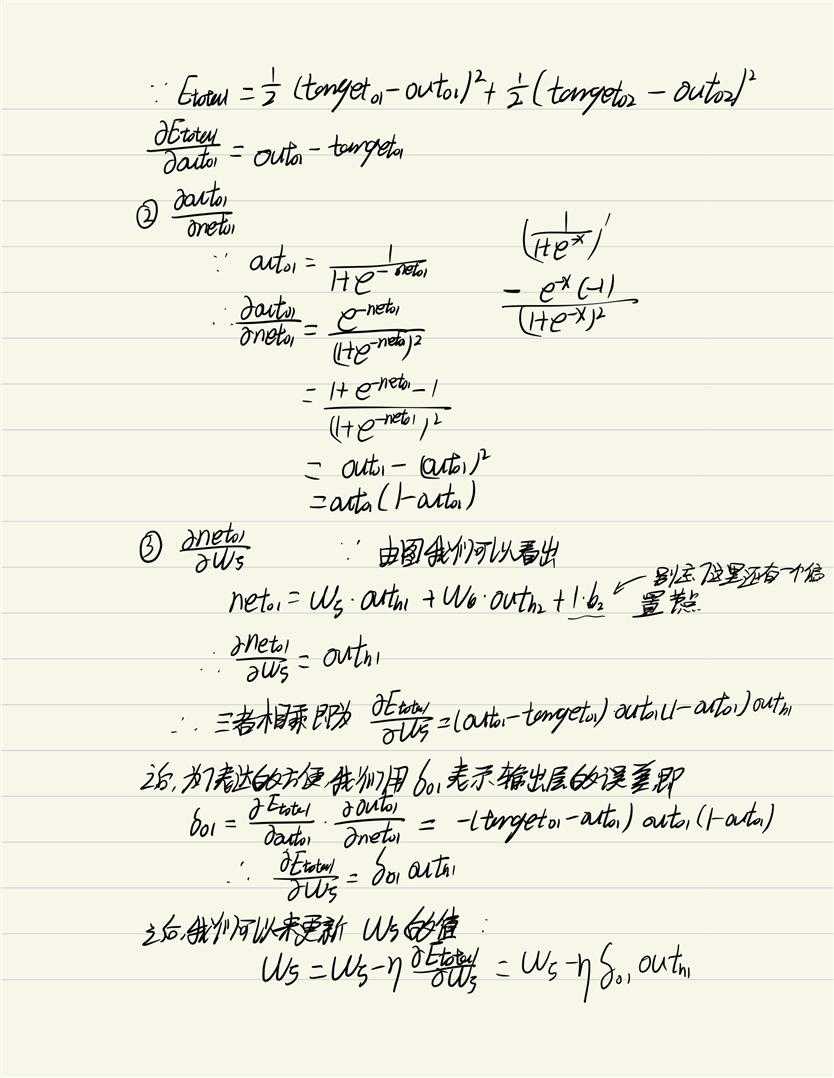 ∵ E_total = 1/2 (target_o1 - out_o1)² + 1/2 (target_o2 - out_o2)²
∂E_total/∂out_o1 = out_o1 - target_o1
② ∂out_o1/∂net_o1
∵ out_o1 = 1/(1+e^(-net_o1))
(1/(1+e^(-x)))'
∴ ∂out_o1/∂net_o1 = e^(-net_o1)/(1+e^(-net_o1))²
- e^(-x)(-1)/(1+e^(-x))²
= (1+e^(-net_o1)-1)/(1+e^(-net_o1))²
= out_o1 - (out_o1)²
= out_o1(1-out_o1)
③ ∂net_o1/∂W5 ∵ 由图我们可以看出
net_o1 = W5·out_h1 + W6·out_h2 + 1·b2 ← 别忘了这里还有一个偏
置节点
∴ ∂net_o1/∂W5 = out_h1
∴ 三者相乘即为 ∂E_total/∂W5 = (out_o1-target_o1) out_o1(1-out_o1) out_h1
之后,为了表达的方便,我们用 δ_o1 表示输出层的误差即
δ_o1 = ∂E_total/∂out_o1 · ∂out_o1/∂net_o1 = -(target_o1-out_o1) out_o1(1-out_o1)
∴ ∂E_total/∂W5 = δ_o1 out_h1
之后,我们可以来更新 W5的值:
W5 = W5 - η ∂E_total/∂W5 = W5 - η δ_o1 out_h1